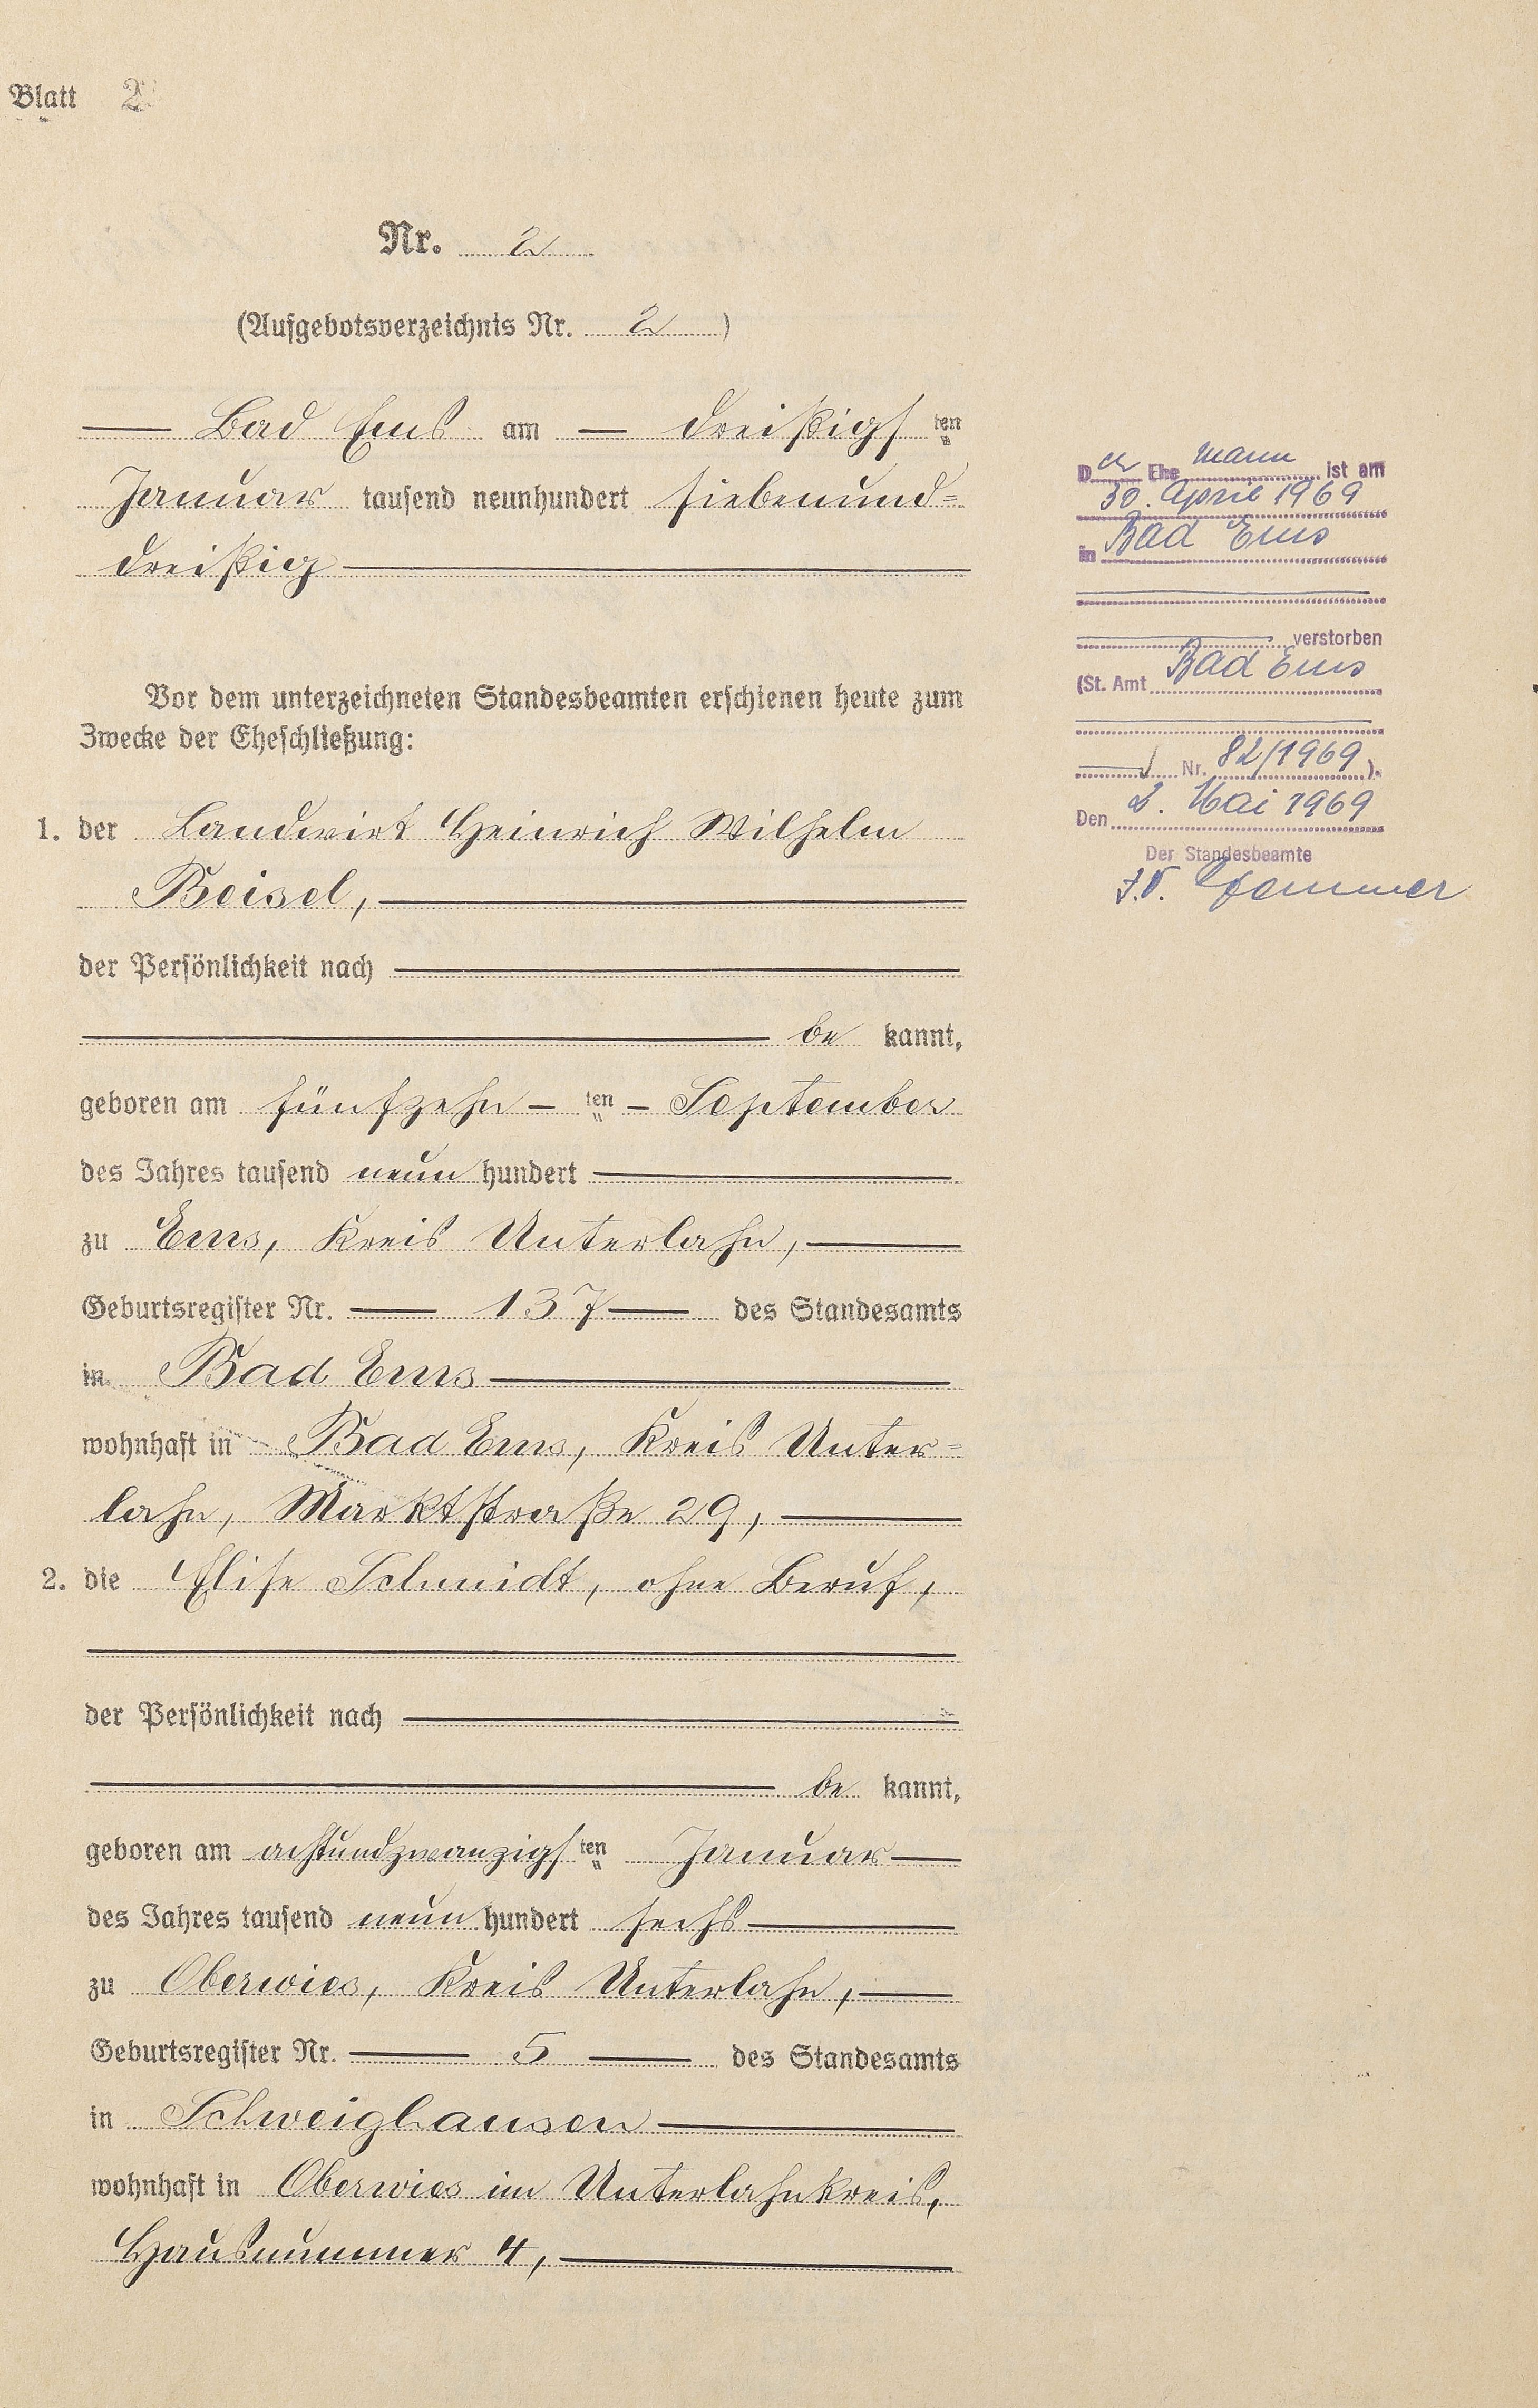 Blatt 2
Nr. 2
(Aufgebotsverzeichnis Nr. 2)
Bad Ems am dreißigsten
Januar tausend neunhundert siebenund=
dreißig
Vor dem unterzeichneten Standesbeamten erschienen heute zum
Zwecke der Eheschließung:
1. der Landwirt Heinrich Wilhelm
Beisel,
der Persönlichkeit nach
be kannt,
geboren am fünfzehn ten September
des Jahres tausend neun hundert
zu Ems, Kreis Unterlahn,
Geburtsregister Nr. 137 des Standesamts
in Bad Ems
wohnhaft in Bad Ems, Kreis Unter=
lahn, Marktstraße 29,
2. die Elise Schmidt, ohne Beruf,
der Persönlichkeit nach
be kannt,
geboren am achtundzwanzigsten Januar
des Jahres tausend neun hundert sechs
zu Oberwies, Kreis Unterlahn,
Geburtsregister Nr. 5 des Standesamts
in Schweighausen
wohnhaft in Oberwies im Unterlahnkreis,
Hausnummer 4,
Der Ehemann ist am
30. April 1969
in Bad Ems
verstorben
(St. Amt Bad Ems
Nr. 82/1969).
Den 2. Mai 1969
Der Standesbeamte
J.V.